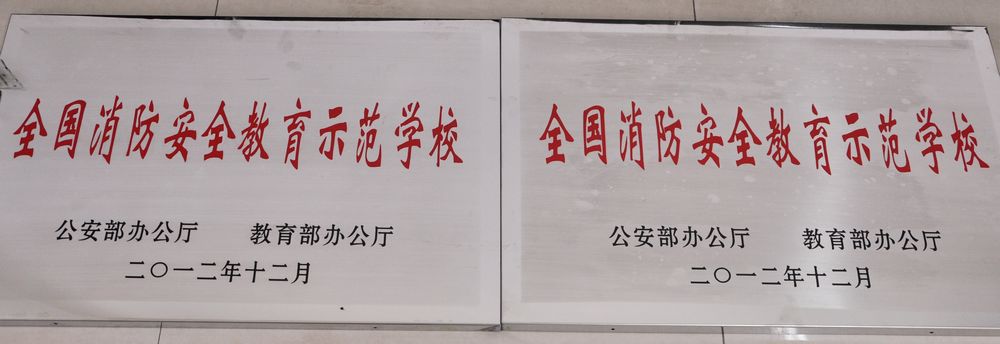 全国消防安全教育示范学校
公安部办公厅 教育部办公厅
二〇一二年十二月
全国消防安全教育示范学校
公安部办公厅 教育部办公厅
二〇一二年十二月